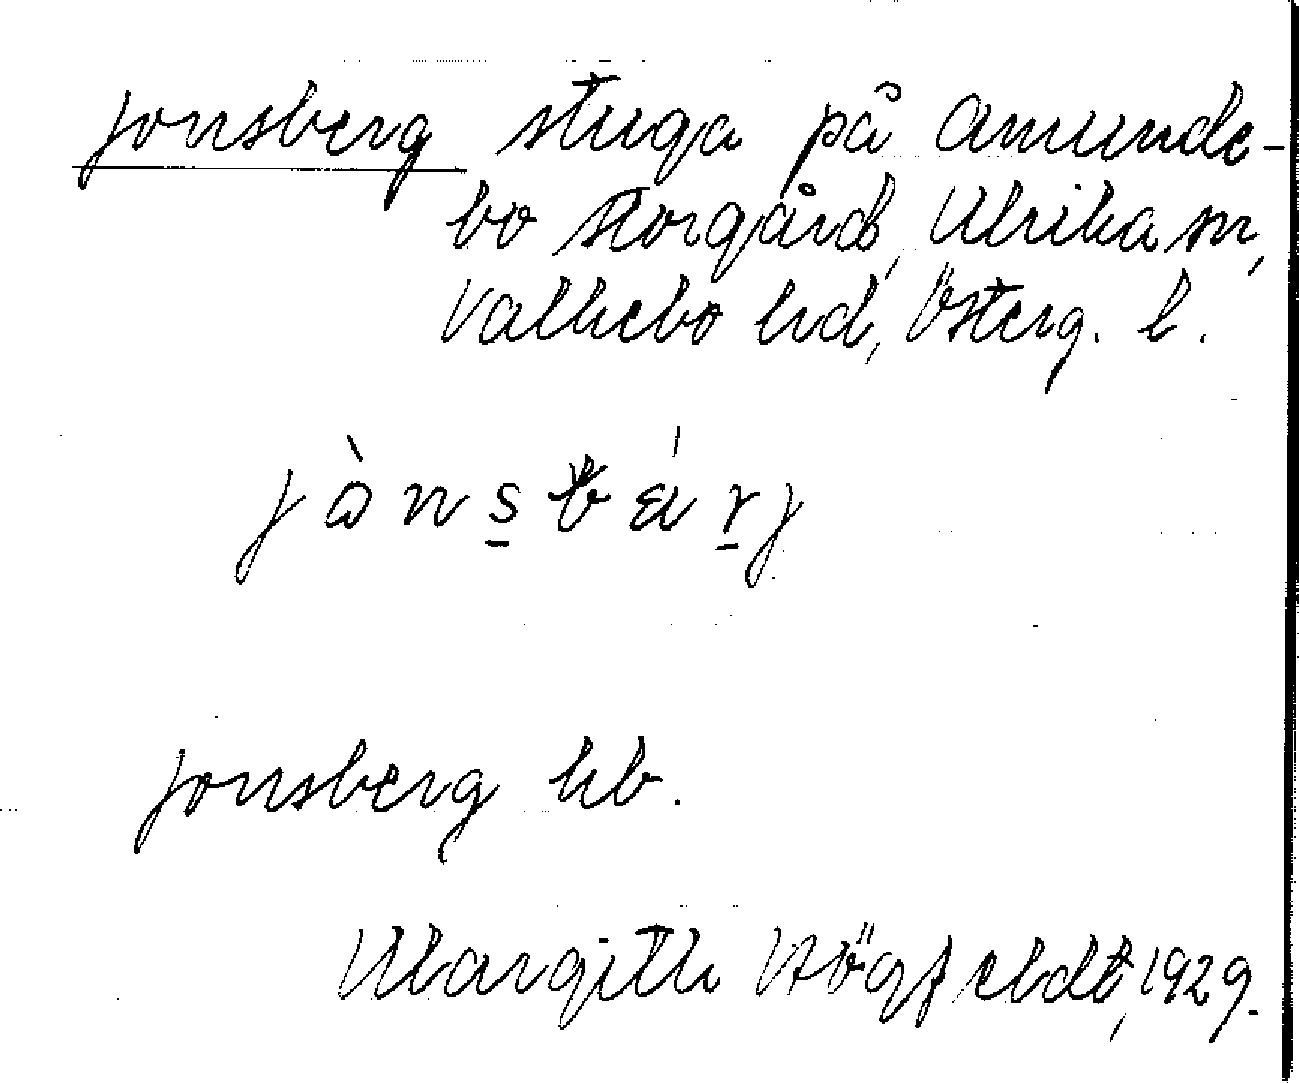 Jonsberg stuga på Amunde-
bo Storgård, Ulrika sn,
Valkebo hd, Österg. l.
Jonsberg hb.
Margith Högfeldt, 1929.